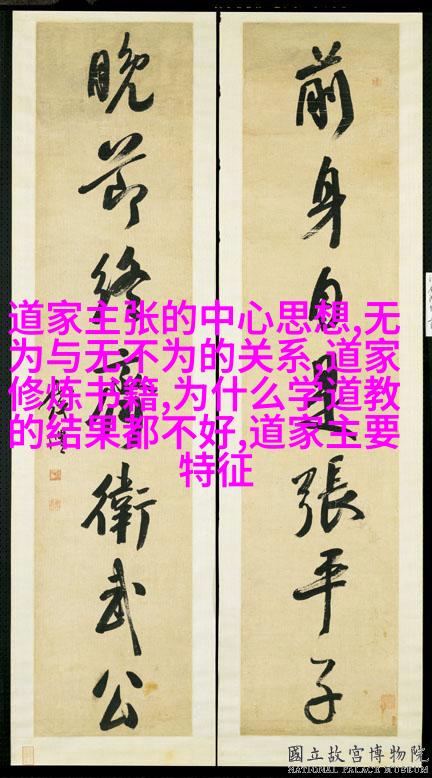 道家主张的中心思想,无
为与无不为的关系,道家
修炼书籍,为什么学道教
的结果都不好,道家主要
特征
前身自是張平子
晚節終衛武公
國立故宮博物院
NATIONAL PALACE MUSEUM